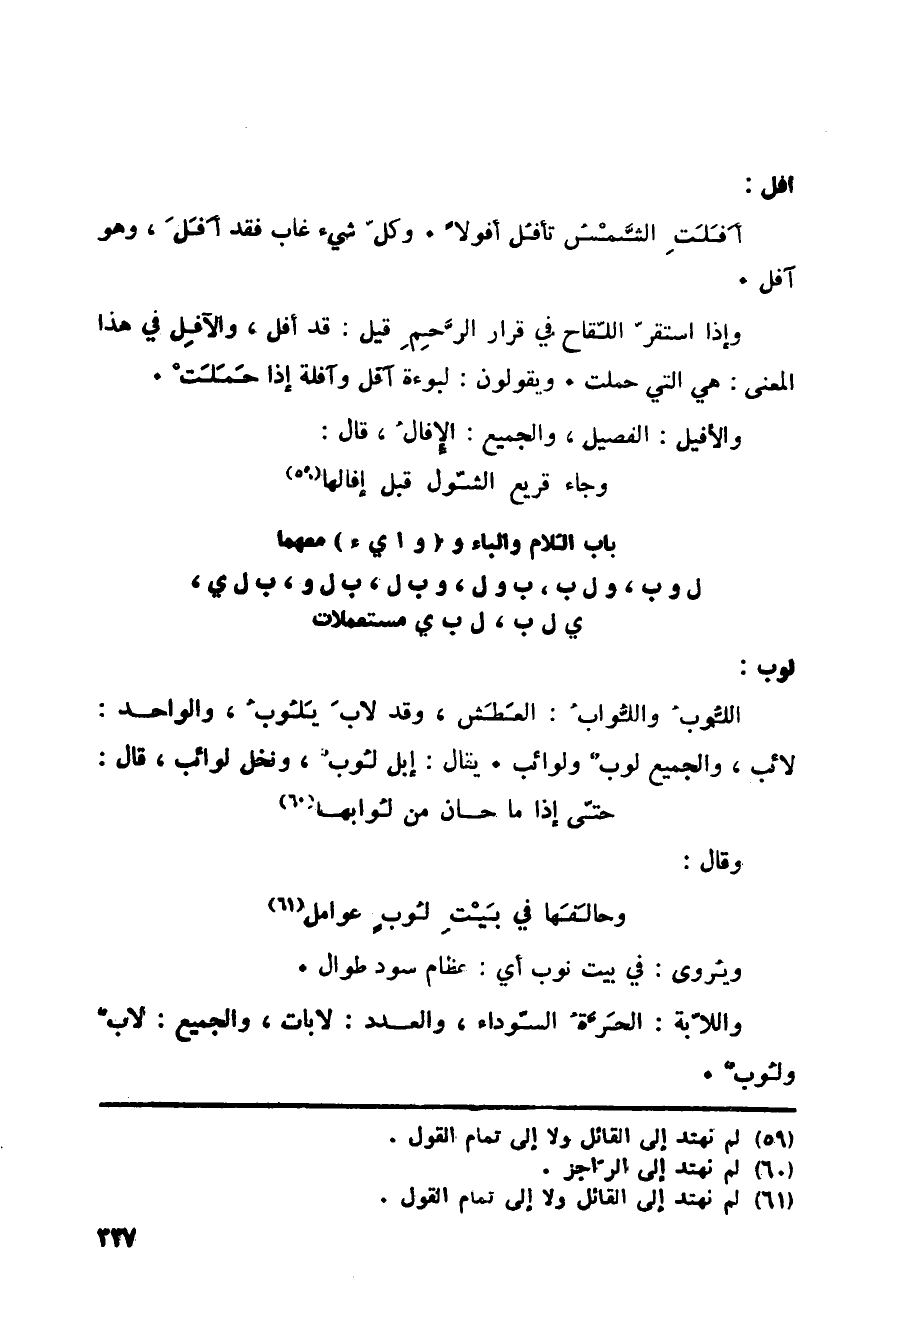 افل :
أَفَلَتِ الشَّمْسُ تأفُل أفولاً . وكلّ شيء غاب فقد أَفَلَ ، وهو
آفل .
وإذا استقرّ اللّقاح في قرار الرَّحِمِ قيل : قد أفل ، والآفِل في هذا
المعنى : هي التي حملت . ويقولون : لبوءة آفل وآفلة إذا حَمَلَتْ .
والأفيل : الفصيل ، والجميع : الإِفالُ ، قال :
وجاء قريع الشّول قبل إفالها(٥٩)
باب اللام والباء و ( و ا ي ء ) معهما
ل و ب ، و ل ب ، ب و ل ، و ب ل ، ب ل و ، ب ل ي ،
ي ل ب ، ل ب ي مستعملات
لوب :
اللُّوبُ واللُّوابُ : العَطَش ، وقد لابَ يَلُوبُ ، والواحد :
لائب ، والجميع لوبٌ ولوائب . يقال : إبل لُوبٌ ، ونخل لوائب ، قال :
حتّى إذا ما حان من لُوابها(٦٠)
وقال :
وحالَفَها في بَيْتِ لُوبٍ عوامل(٦١)
ويُروى : في بيت نوب أي : عظام سود طوال .
واللاّبة : الحَرَّةُ السّوداء ، والعدد : لابات ، والجميع : لابٌ
ولُوبٌ .
(٥٩) لم نهتد إلى القائل ولا إلى تمام القول .
(٦٠) لم نهتد إلى الرّاجز .
(٦١) لم نهتد إلى القائل ولا إلى تمام القول .
٣٣٧